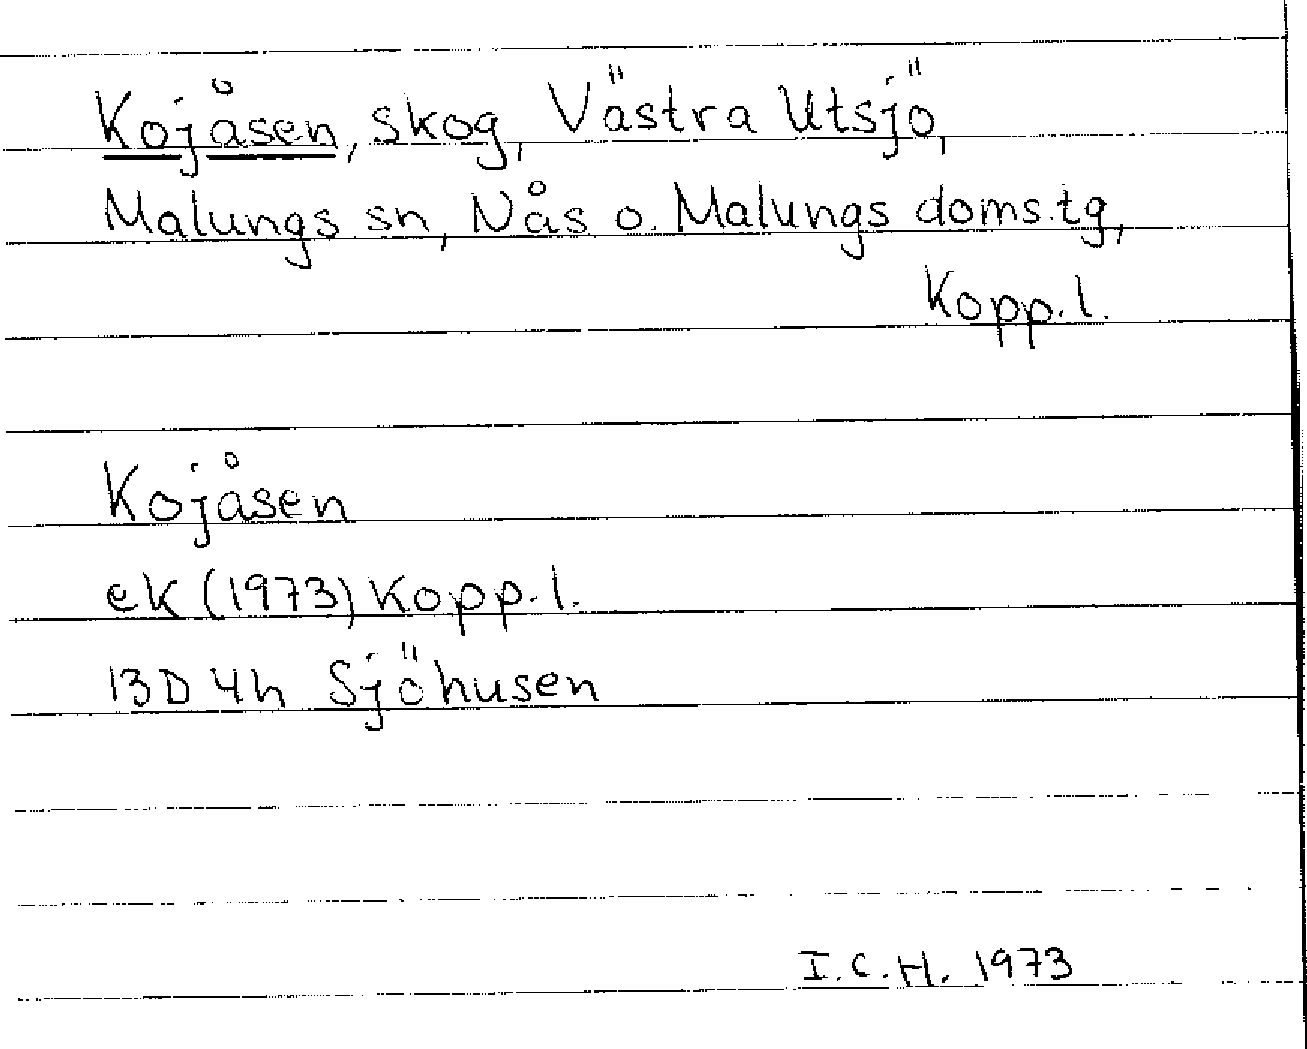 Kojåsen, skog, Västra Utsjö,
Malungs sn, Nås o. Malungs doms.tg,
Kopp.l.
Kojåsen
ek (1973) Kopp.l.
13D 4h Sjöhusen
I.C.H. 1973